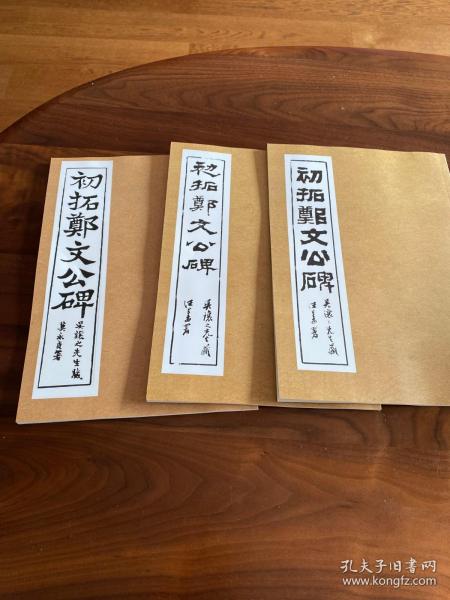 初拓鄭文公碑
吴讓之先生藏
莫永貞署
初拓鄭文公碑
吴讓之先生藏
初拓鄭文公碑
吴讓之先生藏
孔夫子旧书网
www.kongfz.com